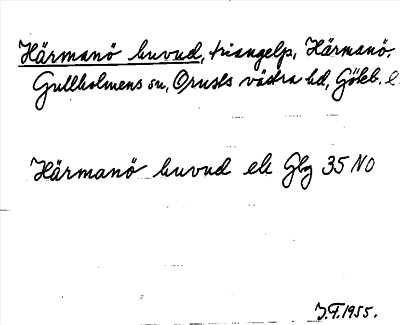 Härmanö huvud, triangelp, Härmanö,
Gullholmens sn, Orusts västra hd, Göteb. l.
Härmanö huvud ek Gbg 35 NO
J.F. 1955.